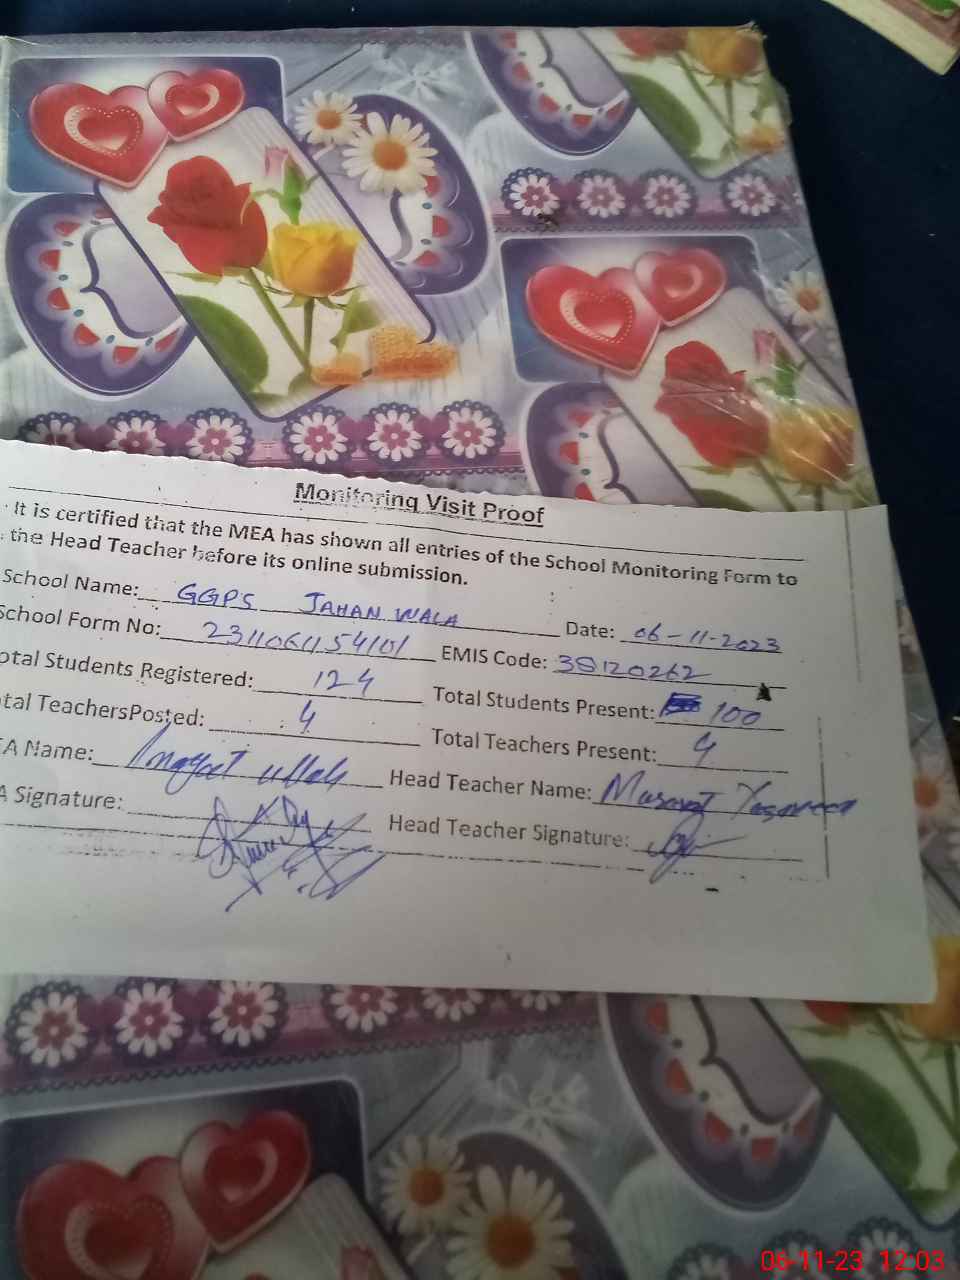 Monitoring Visit Proof
It is certified that the MEA has shown all entries of the School Monitoring Form to
the Head Teacher before its online submission.
School Name: GGPS JAHAN WALA Date: 06-11-2023
School Form No: 231106115410101 EMIS Code: 38120262
otal Students Registered: 124 Total Students Present: 100
tal TeachersPosted: 4 Total Teachers Present: 4
A Name: Inayat ullah Head Teacher Name: Musarat Yasmeen
A Signature: Head Teacher Signature:
06-11-23 12:03